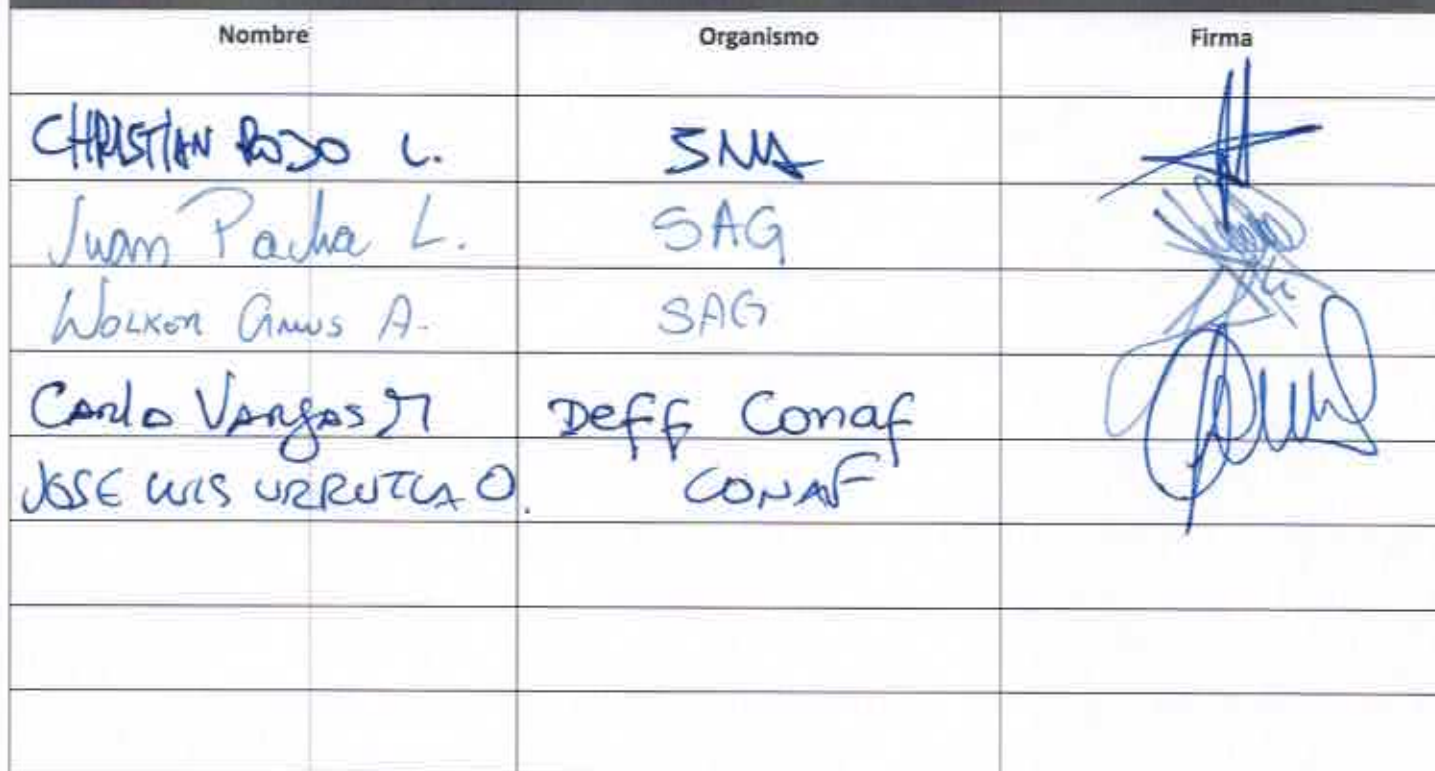 Nombre Organismo Firma
CHRISTIAN ROJO L. SMA
Juan Pacha L. SAG
Wolker A. SAG
Carlo Vargas M Deff Conaf
JOSE LUIS URRUTIA O. CONAF